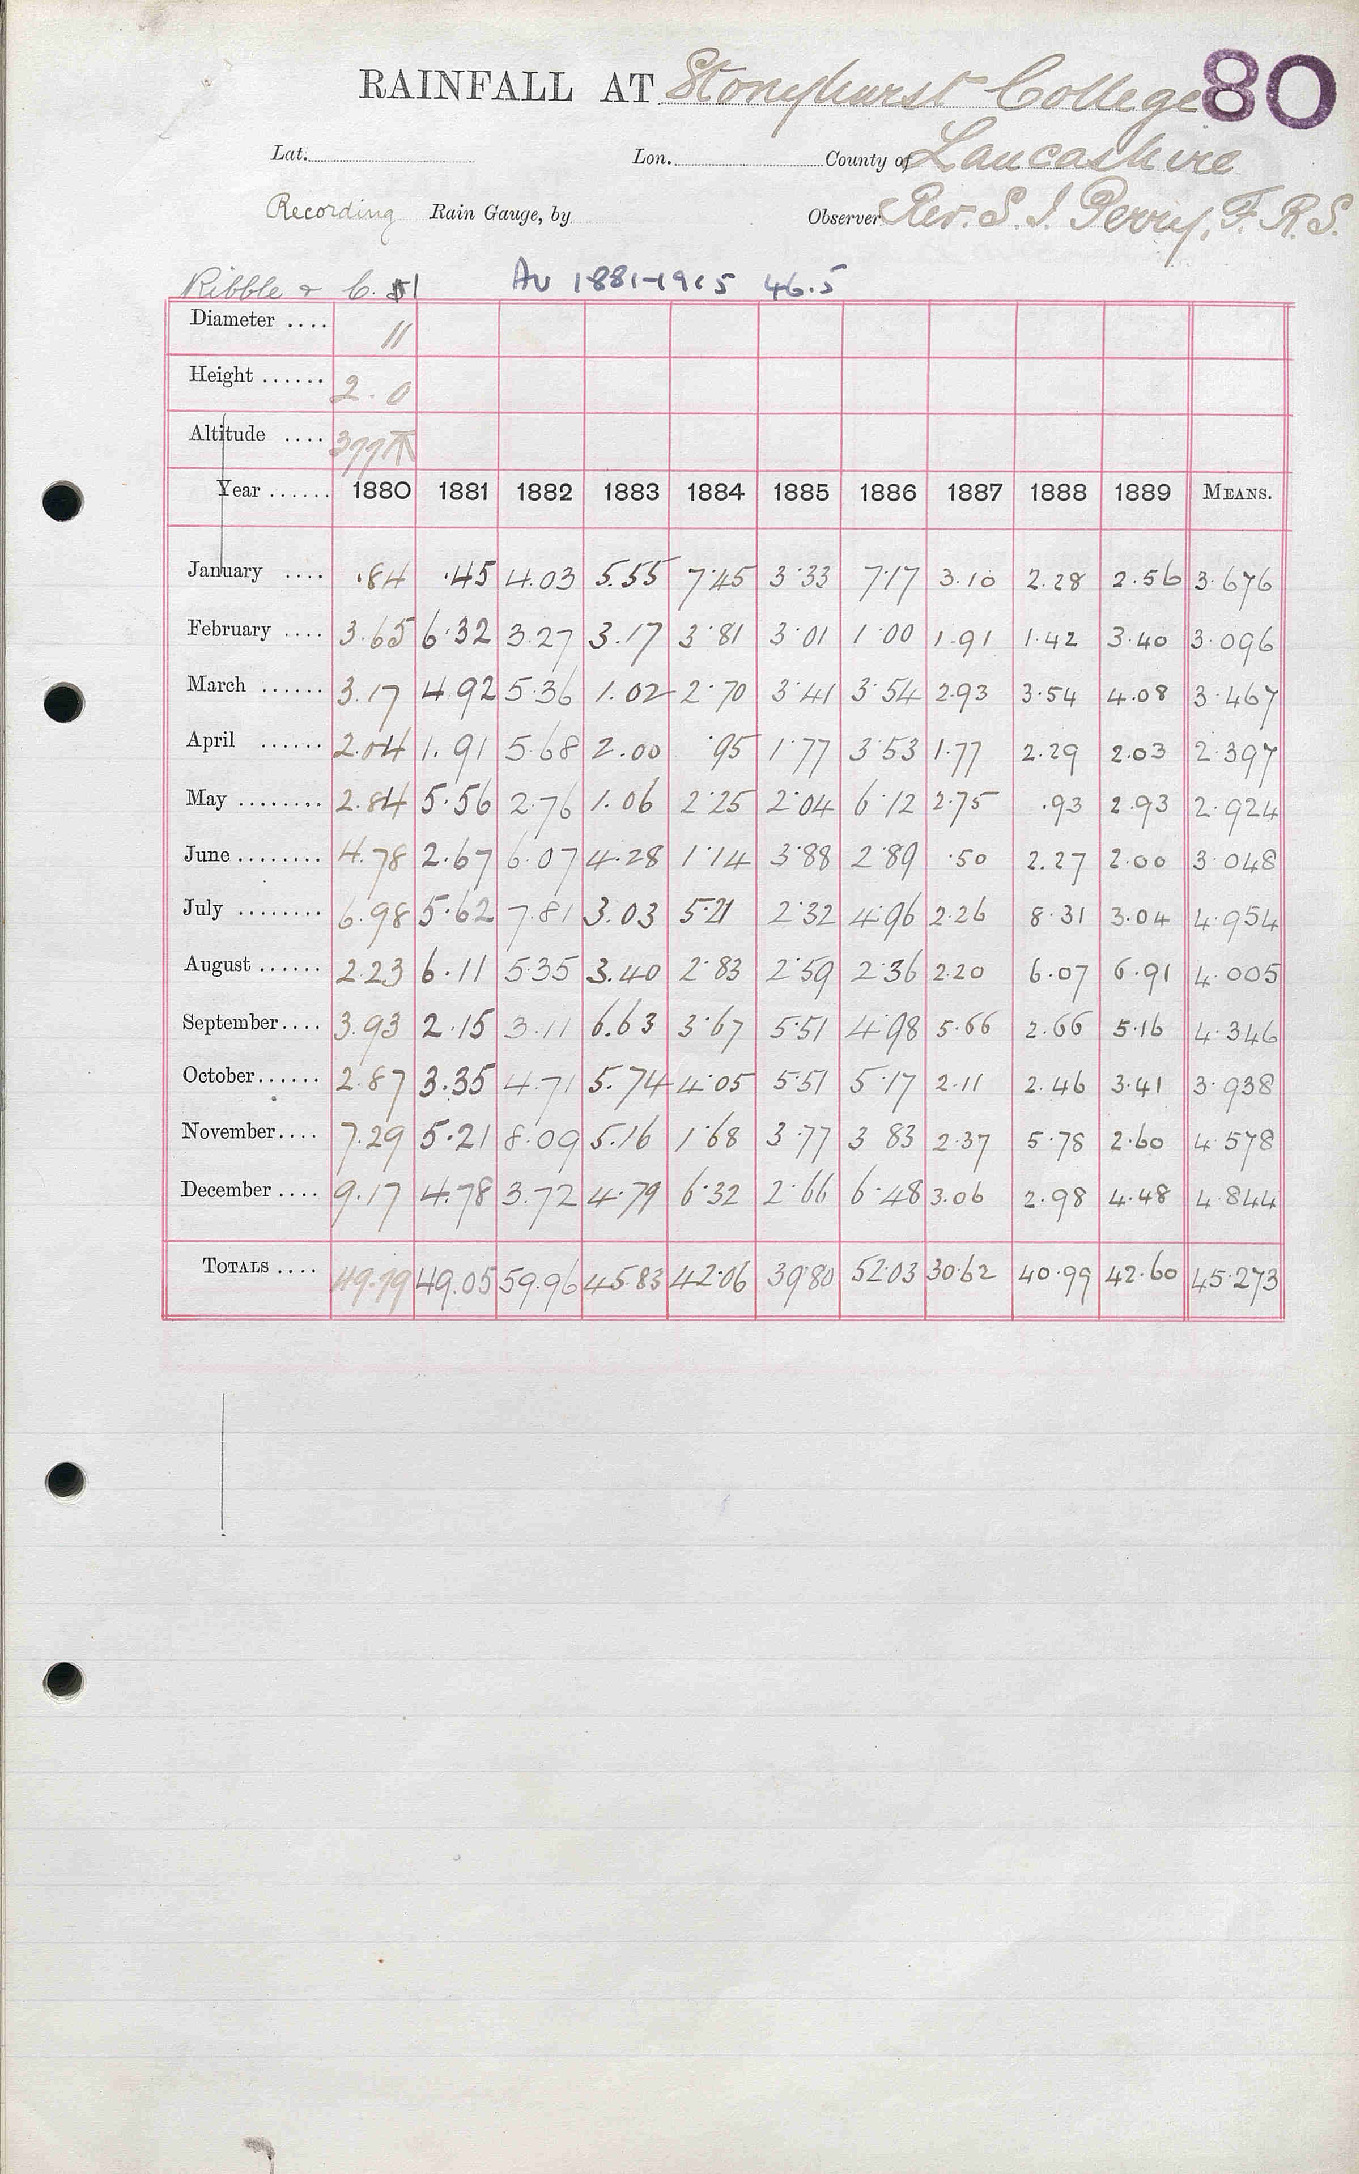 RAINFALL AT Stonyhurst College 80
Lat. Lon. County of Lancashire
Recording Rain Gauge, by Observer Rev. S. J. Perry, F.R.S.
Ribble & C. 51 Av 1881-1915 46.5
Diameter .... 11
Height ...... 2.0
Altitude .... 377
Year ...... 1880 1881 1882 1883 1884 1885 1886 1887 1888 1889 MEANS.
January .... .84 .45 4.03 5.55 7.45 3.33 7.17 3.10 2.28 2.56 3.676
February .... 3.65 6.32 3.27 3.17 3.81 3.01 1.00 1.91 1.42 3.40 3.096
March ...... 3.17 4.92 5.36 1.02 2.70 3.41 3.54 2.93 3.54 4.08 3.467
April ...... 2.04 1.91 5.68 2.00 .95 1.77 3.53 1.77 2.29 2.03 2.397
May ........ 2.84 5.56 2.76 1.06 2.25 2.04 6.12 2.75 .93 2.93 2.924
June ........ 4.78 2.67 6.07 4.28 1.14 3.88 2.89 .50 2.27 2.00 3.048
July ........ 6.98 5.62 7.81 3.03 5.21 2.32 4.96 2.26 8.31 3.04 4.954
August ...... 2.23 6.11 5.35 3.40 2.83 2.59 2.36 2.20 6.07 6.91 4.005
September .... 3.93 2.15 3.11 6.63 3.67 5.51 4.98 5.66 2.66 5.16 4.346
October ...... 2.87 3.35 4.71 5.74 4.05 5.51 5.17 2.11 2.46 3.41 3.938
November .... 7.29 5.21 8.09 5.16 1.68 3.77 3 83 2.37 5.78 2.60 4.578
December .... 9.17 4.78 3.72 4.79 6.32 2.66 6.48 3.06 2.98 4.48 4.844
TOTALS .... 49.79 49.05 59.96 45.83 42.06 39.80 52.03 30.62 40.99 42.60 45.273